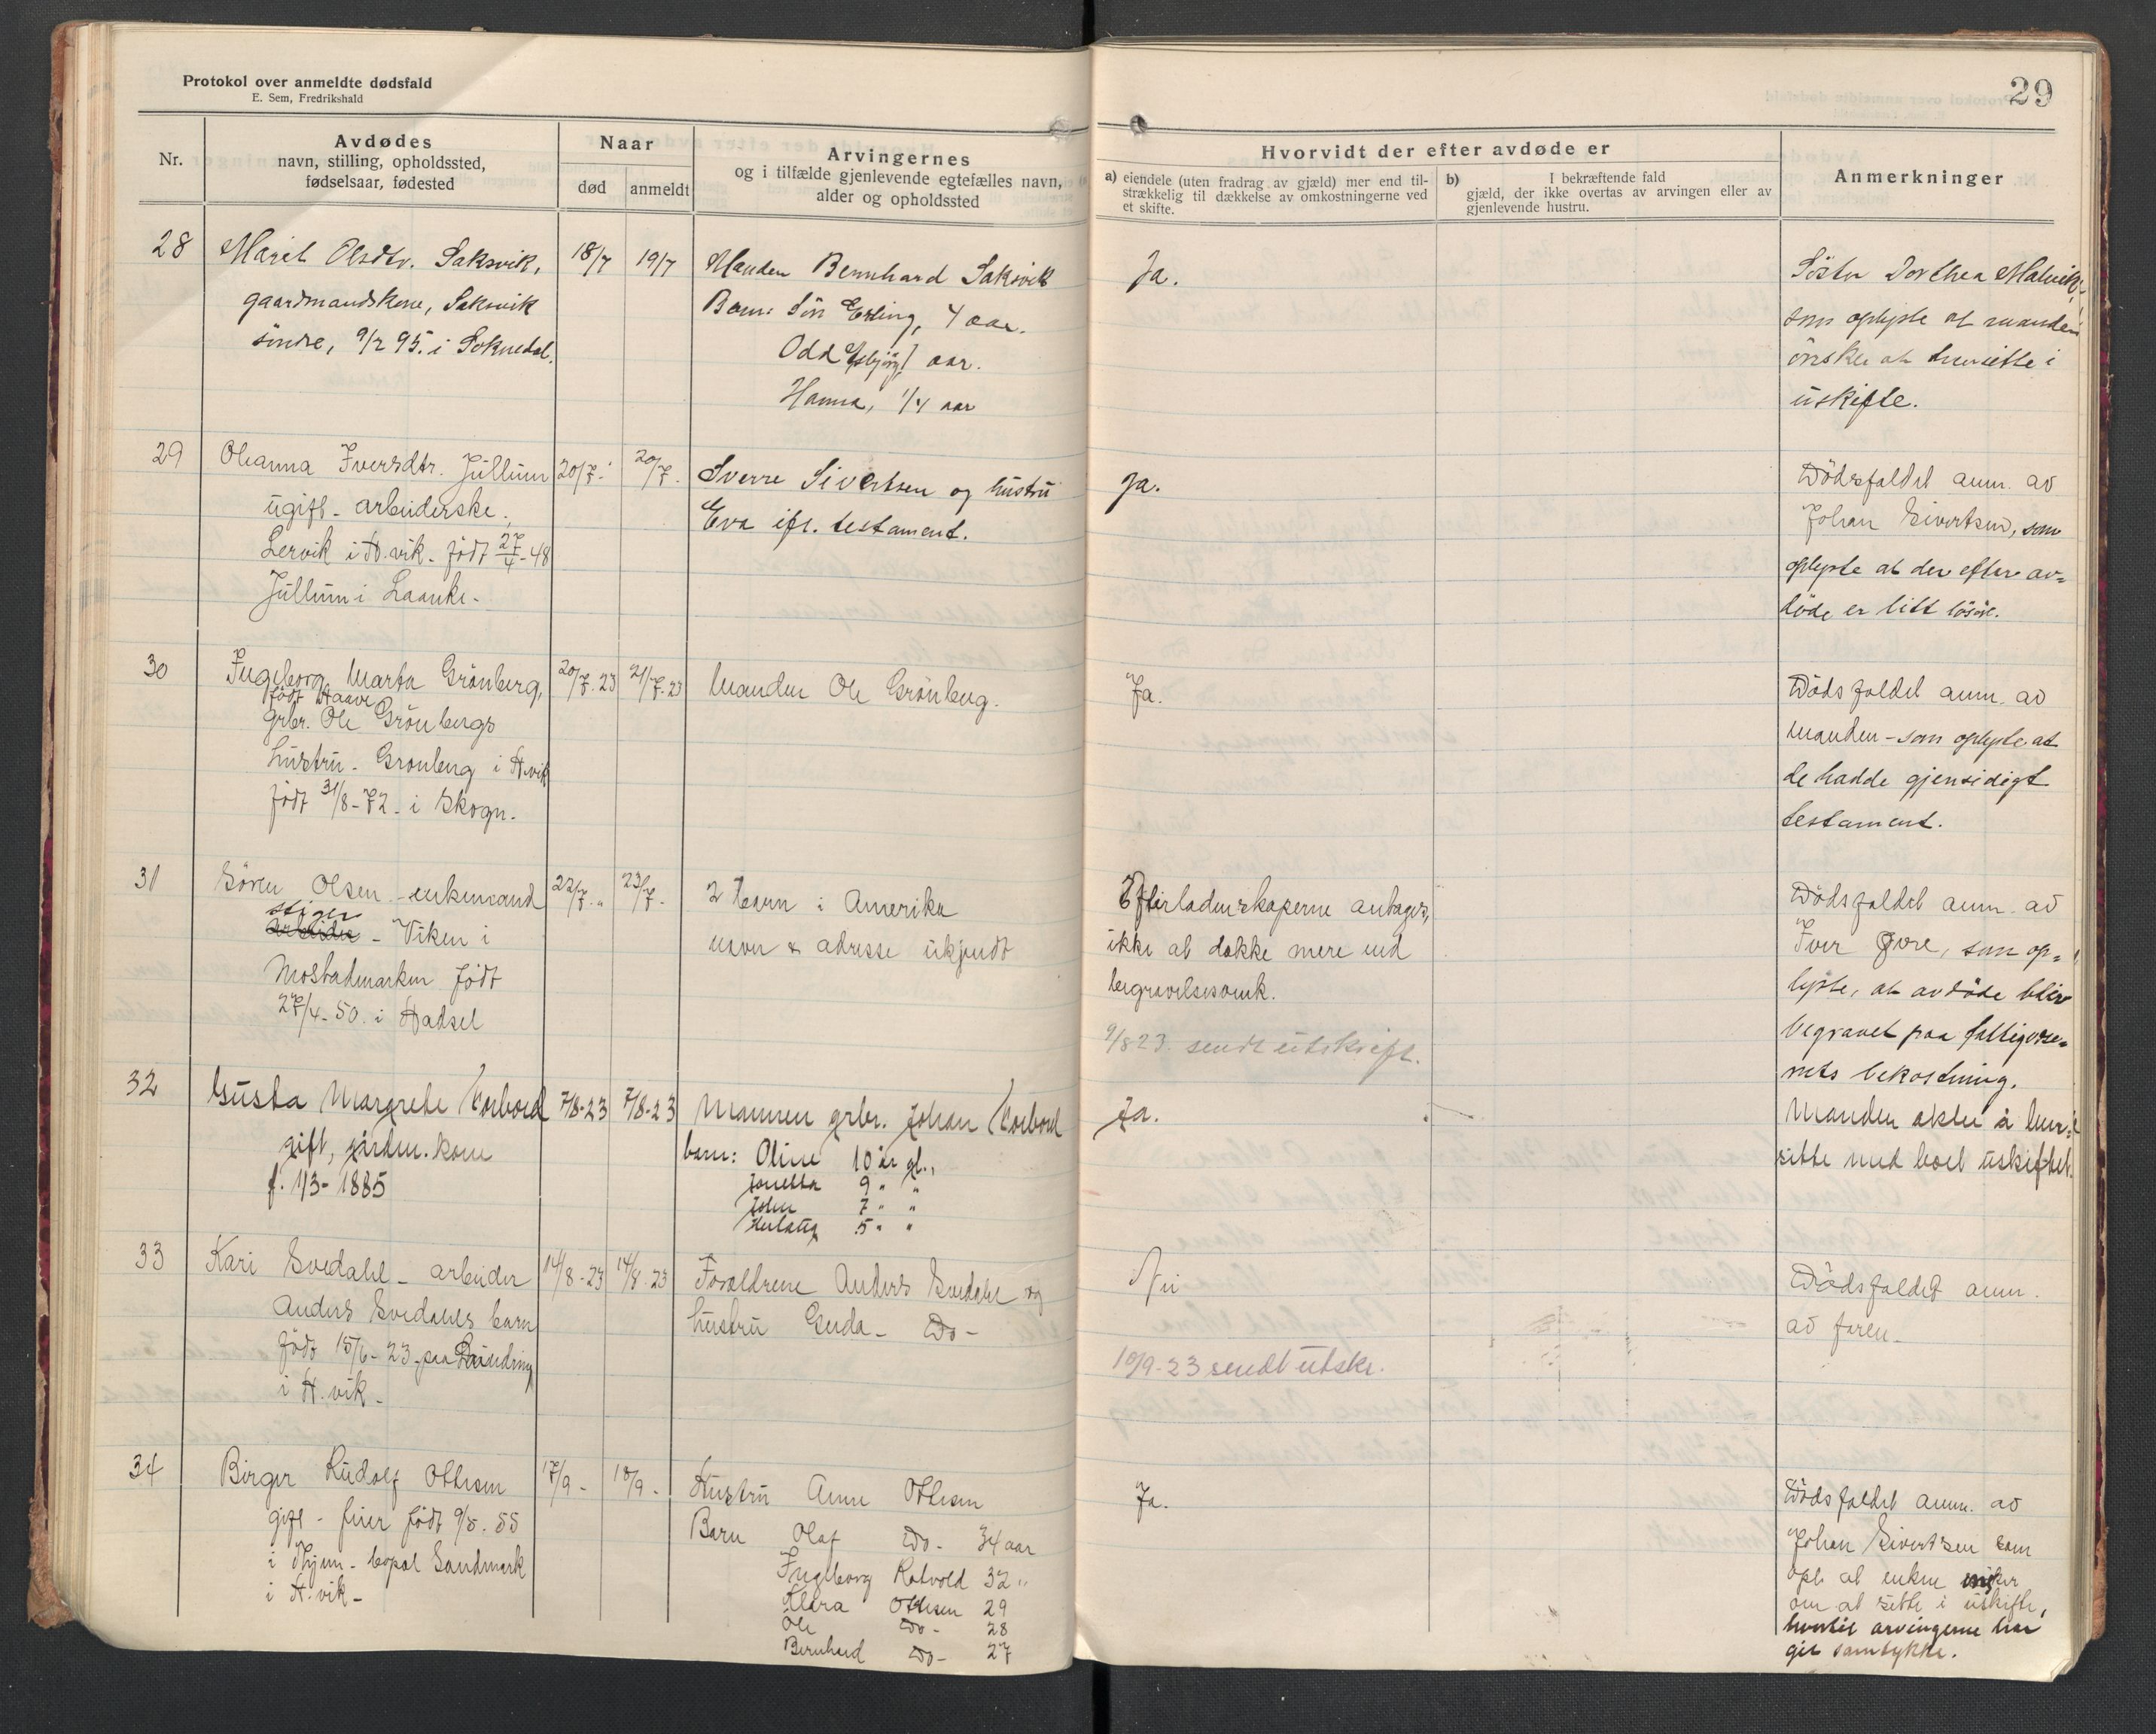 Protokol over anmeldte dødsfald
E. Sem, Fredrikshald
29
Nr.
Avdødes
navn, stilling, opholdssted,
fødselsaar, fødested
Naar
død
anmeldt
Arvingernes
og i tilfælde gjenlevende egtefælles navn,
alder og opholdssted
Hvorvidt der efter avdøde er
a) eiendele (uten fradrag av gjæld) mer end til-
strækkelig til dækkelse av omkostningerne ved
et skifte.
b) I bekræftende fald
gjæld, der ikke overtas av arvingen eller av
gjenlevende hustru.
Anmerkninger
28
Marit Olsdtr. Saksvik,
gaardmandskone, Saksvik
søndre, 9/2 95. i Soknedal.
18/7
19/7
Manden Bernhard Saksvik
Barn: Søn Erling, 4 aar.
Odd Esbjørg, aar.
Hanna, 1/4 aar
Ja.
Søster Dorthea Malvik,
som oplyste at manden
ønsker at hensitte i
uskifte.
29
Olianna Iversdtr. Jullum
ugift - arbeiderske,
Lervik i H.vik. født 27/4-48
Jullum i Laanke.
20/7.
20/7.
Sverre Sivertsen og hustru
Eva ifl. testament.
Ja.
Dødsfaldet anm. av
Johan Sivertsen, som
oplyste at der efter av=
døde er litt løsøre.
30
Ingeborg Marta Grønberg,
født Haave
grbr. Ole Grønbergs
hustru - Grønberg i H.vik
født 31/8-72. i Skogn.
20/7.23
21/7.23
Manden Ole Grønberg.
Ja.
Dødsfaldet anm. av
manden - som oplyste at
de hadde gjensidigt
testament.
31
Søren Olsen - enkemand
stiger
arbeider - Viken i
Mostadmarken født
27/4-50. i Hadsel
22/7. "
23/7.
2 barn i Amerika
navn & adresse ukjendt
Efterladenskaperne antages,
ikke at dække mere end
begravelsesomk.
9/8 23. sendt utskrift.
Dødsfaldet anm. av
Iver Øvre, som op=
lyste, at avdøde blir
begravet paa fattigvæse=
nets bekostning.
32
Gusta Margrete Vorbord
gift, gårdm. kone
f. 1/3-1885
7/8-23
7/8-23
Mannen grbr. Johan Vorbord
barn: Oline 10 år gl.,
Jonetta 9 " "
John 7 " "
Herlaug 5 " "
Ja.
Manden akter å hen=
sitte med boet uskiftet.
33
Kari Svedahl - arbeider
Anders Svedahls barn
født 15/6-23 paa
i H.vik -
14/8-23
14/8-23
Forældrene Anders Svedahl og
hustru Gerda - Do -
Nei
10/9-23 sendt utskr.
Dødsfaldet anm.
av faren -
34
Birger Rudolf Othesen
gift - feier født 9/5. 55
i Thjem - bopæl Sandmark
i H.vik -
17/9 -
18/9 -
Hustru Anne Othesen
Barn Olaf Do - 34 aar
Ingeborg Rotvold 32 "
Klara Othesen 29
Ole Do - 28
Bernhard Do - 27
Ja.
Dødsfaldet anm. av
Johan Sivertsen som
opl. at enken ønsker
om at sitte i uskifte,
hvortil arvingerne har
git samtykke.